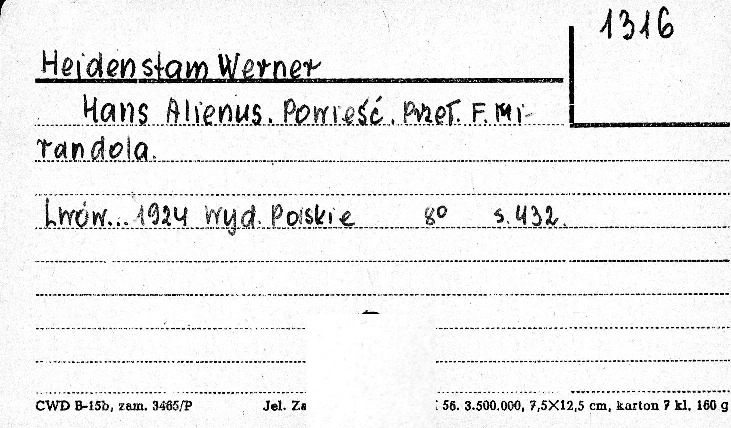 1316
Heidenstam Werner
Hans Alienus. Powieść. Przeł. F. Mi-
randola.
Lwów... 1924 Wyd. Polskie 8° s. 432.
CWD B-15b, zam. 3465/P Jel. Za 56. 3.500.000, 7,5×12,5 cm, karton 7 kl. 160 g